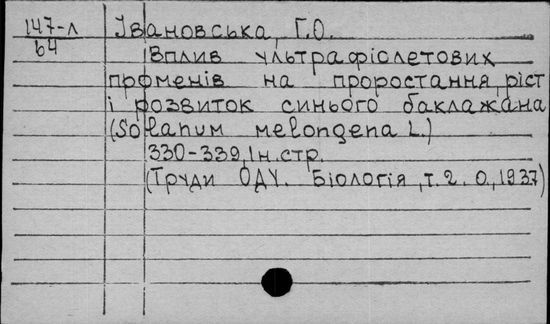 147-л Івановська, Г.О.
64
Вплив ультрафіолетових
променів на проростання, ріст
і розвиток синього баклажана
(Solanum melongena L.)
330-339, Ін. стр.
(Труди ОДУ. Біологія, т. 2. О., 1937)